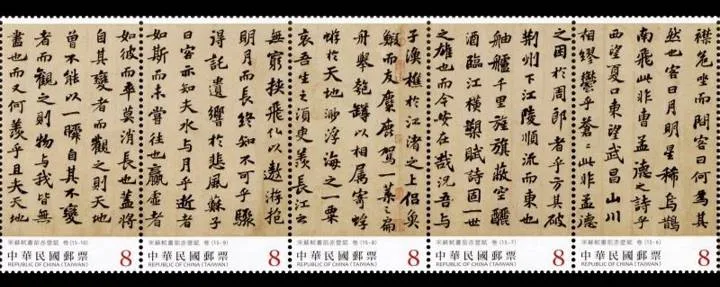 襟危坐而問客曰何為其
然也客曰月明星稀烏鵲
南飛此非曹孟德之詩乎
西望夏口東望武昌山川
相繆鬱乎蒼〻此非孟德
之困於周郎者乎方其破
荊州下江陵順流而東也
舳艫千里旌旗蔽空釃
酒臨江橫槊賦詩固一世
之雄也而今安在哉況吾與
子漁樵於江渚之上侶魚
鰕而友麋鹿駕一葉之扁
舟舉匏樽以相屬寄蜉
蝣於天地渺浮海之一粟
哀吾生之須臾羨長江之
無窮挾飛仙以遨遊抱
明月而長終知不可乎驟
得託遺響於悲風蘇子
曰客亦知夫水與月乎逝者
如斯而未嘗往也贏虛者
如彼而卒莫消長也蓋將
自其變者而觀之則天地
曾不能以一瞬自其不變
者而觀之則物與我皆無
盡也而又何羨乎且夫天地
宋蘇軾書前赤壁賦 卷(15-10)
中華民國郵票 8
REPUBLIC OF CHINA (TAIWAN)
宋蘇軾書前赤壁賦 卷(15-9)
中華民國郵票 8
REPUBLIC OF CHINA (TAIWAN)
宋蘇軾書前赤壁賦 卷(15-8)
中華民國郵票 8
REPUBLIC OF CHINA (TAIWAN)
宋蘇軾書前赤壁賦 卷(15-7)
中華民國郵票 8
REPUBLIC OF CHINA (TAIWAN)
宋蘇軾書前赤壁賦 卷(15-6)
中華民國郵票 8
REPUBLIC OF CHINA (TAIWAN)